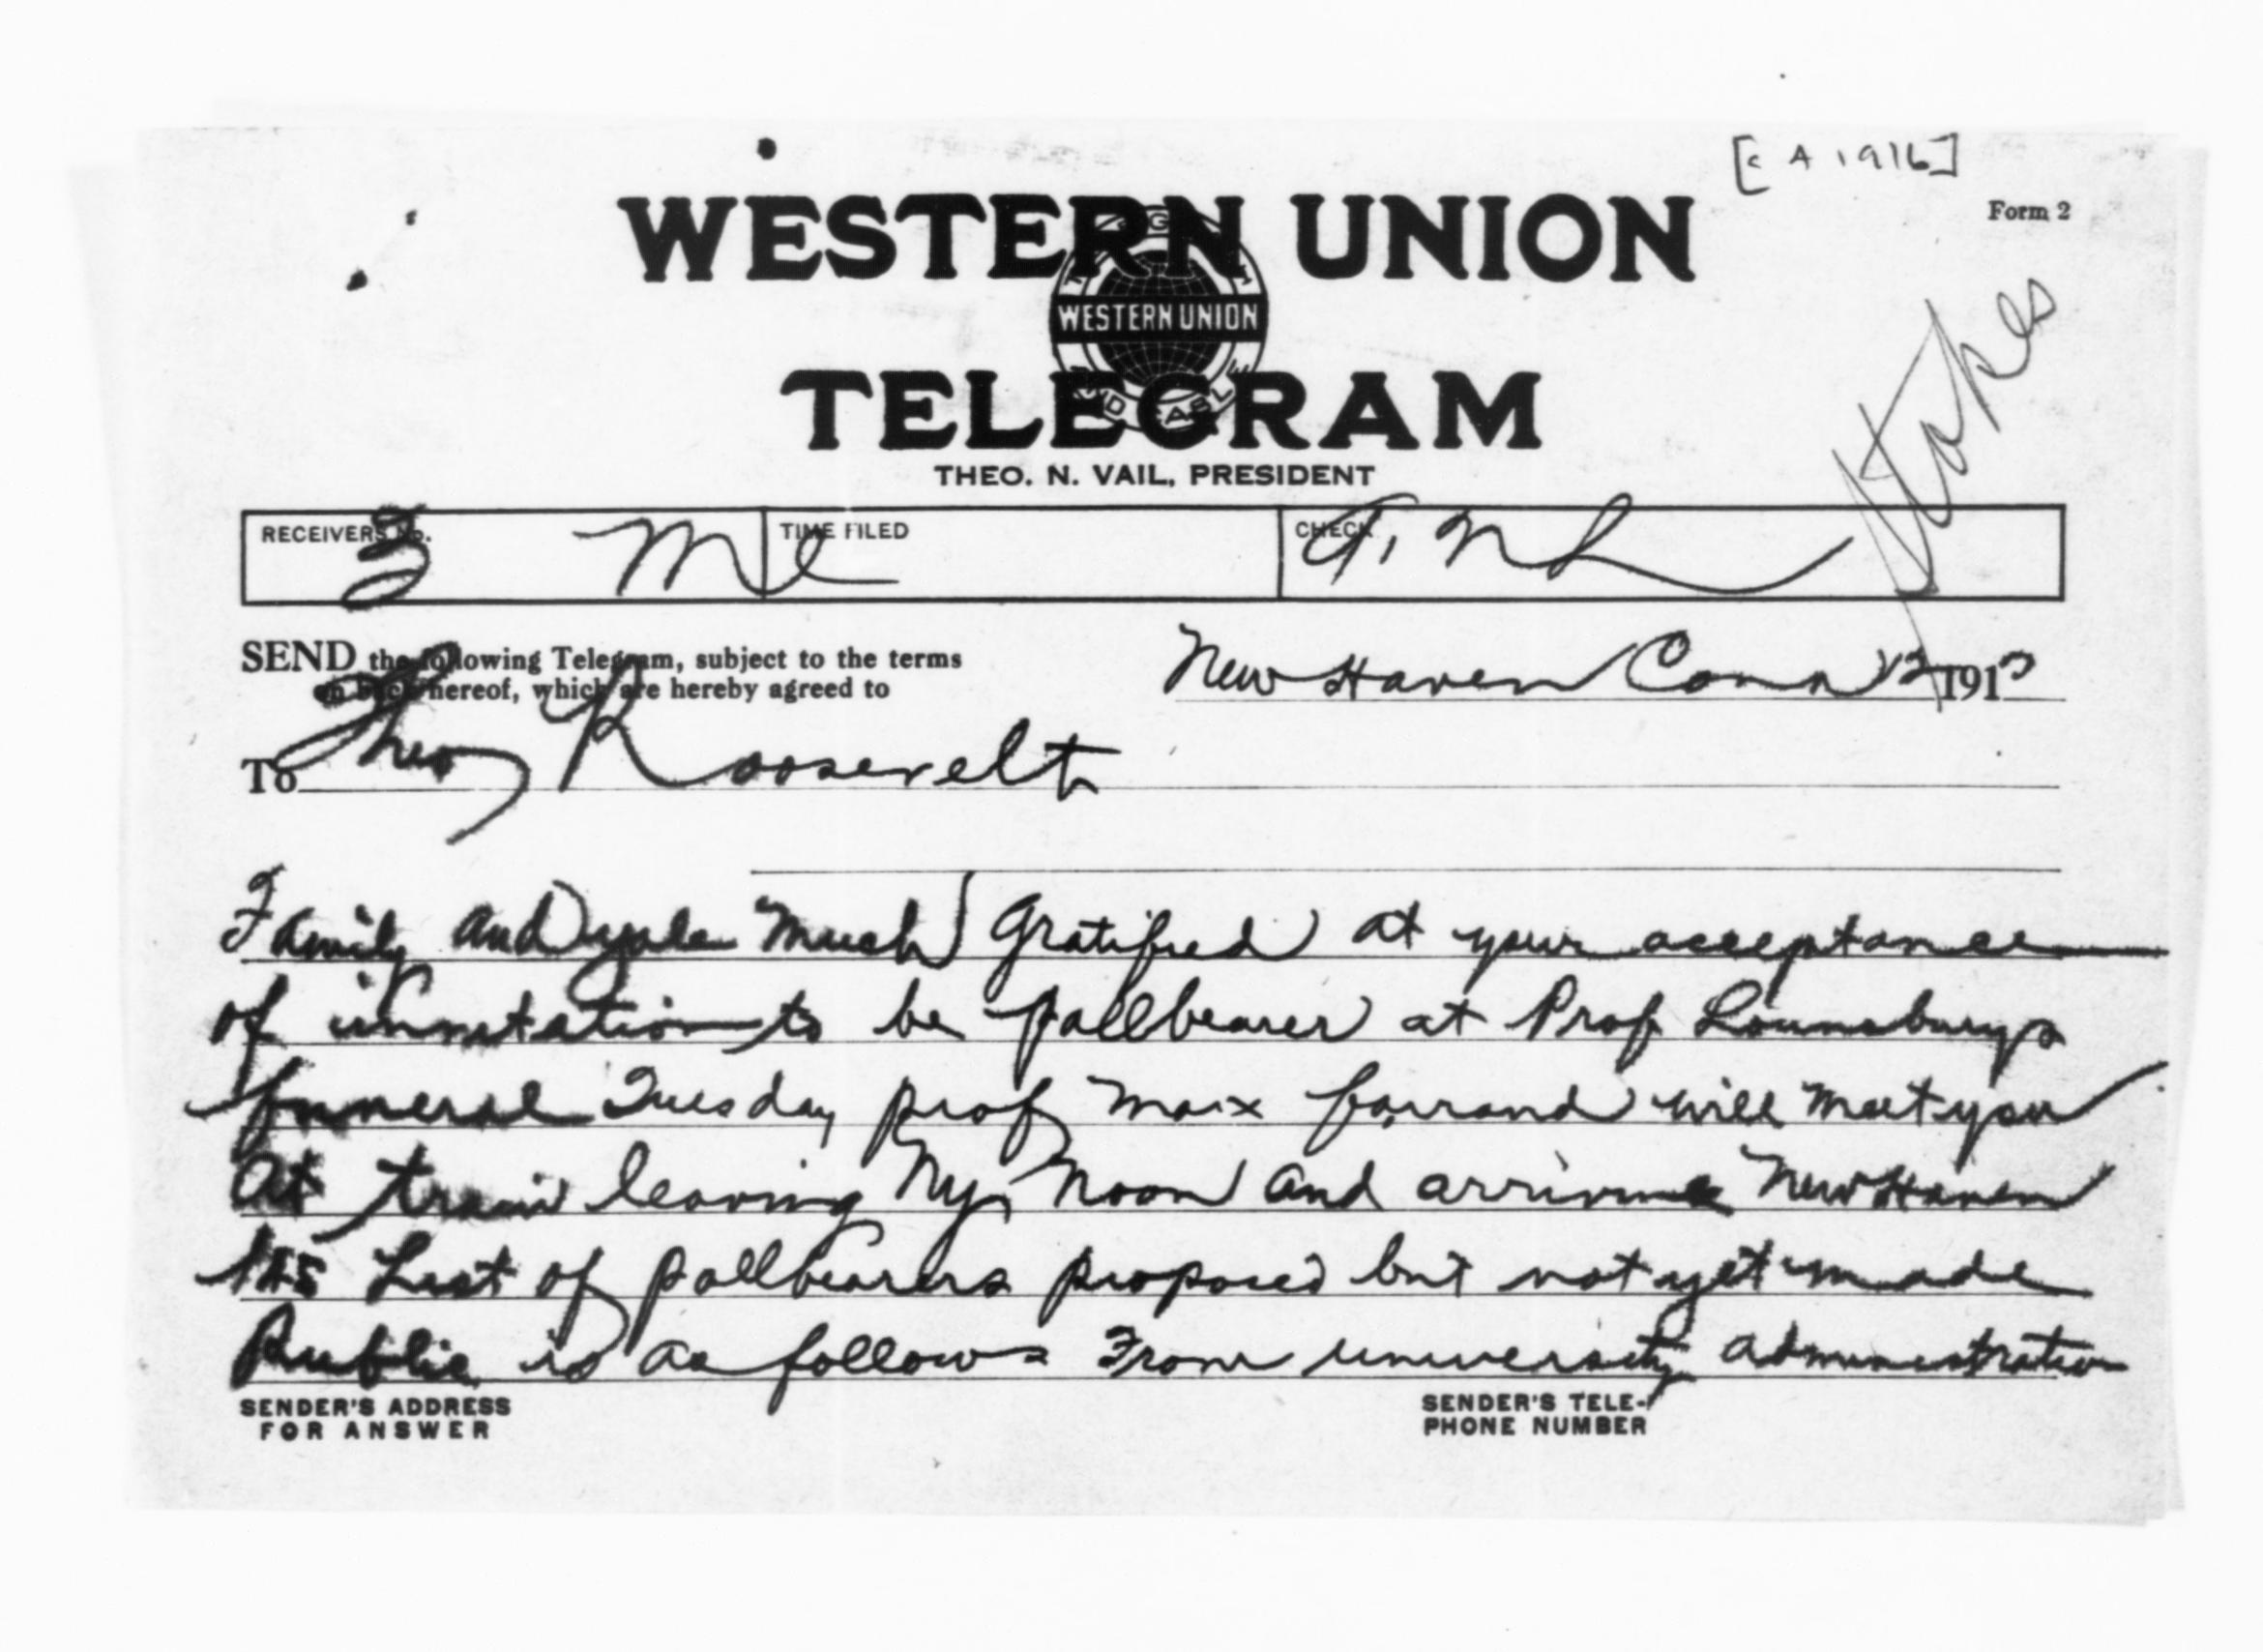 [cA 1916]
WESTERN UNION
Form 2
WESTERN UNION
TELEGRAM
THEO. N. VAIL, PRESIDENT
Stokes
RECEIVERS No. 3 Mc
TIME FILED
CHECK
SEND the following Telegram, subject to the terms
on back hereof, which are hereby agreed to
New Haven Conn 12 191
To Theo Roosevelt
Family and yale much gratified at your acceptance
of invitation to be pallbearer at Prof Lounsburys
funeral Tuesday prof max farrand will meet you
at train leaving Ny noon and arriving New Haven
List of pallbearers proposed but not yet made
Public is as follows From university administration
SENDER'S ADDRESS
FOR ANSWER
SENDER'S TELE-
PHONE NUMBER